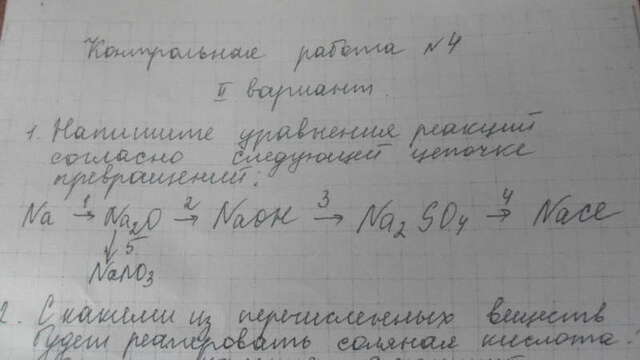 Контрольная работа №4
II вариант.
1. Напишите уравнения реакций
согласно следующей цепочке
превращений:
Na 1→ Na₂O 2→ NaOH 3→ Na₂SO₄ 4→ NaCl
↓5
NaNO₃
2. С какими из перечисленных веществ
будет реагировать соляная кислота.